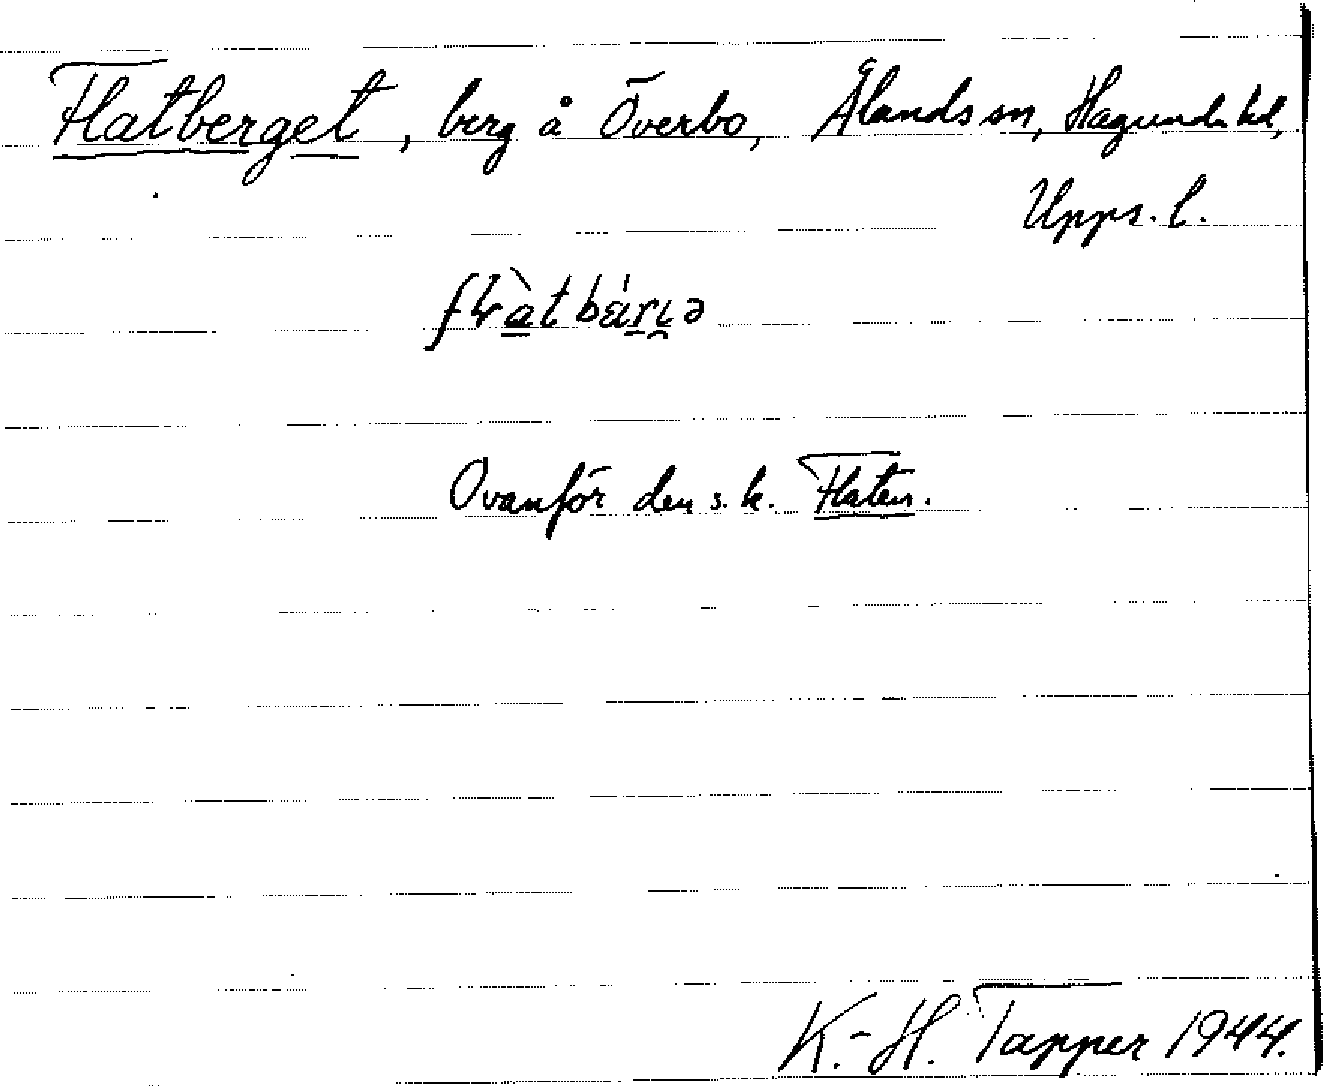 Flatberget, berg å Överbo, Ålands sn, Hagunda hd,
Upps. l.
Ovanför den s. k. Flaten.
K.-H. Tapper 1944.